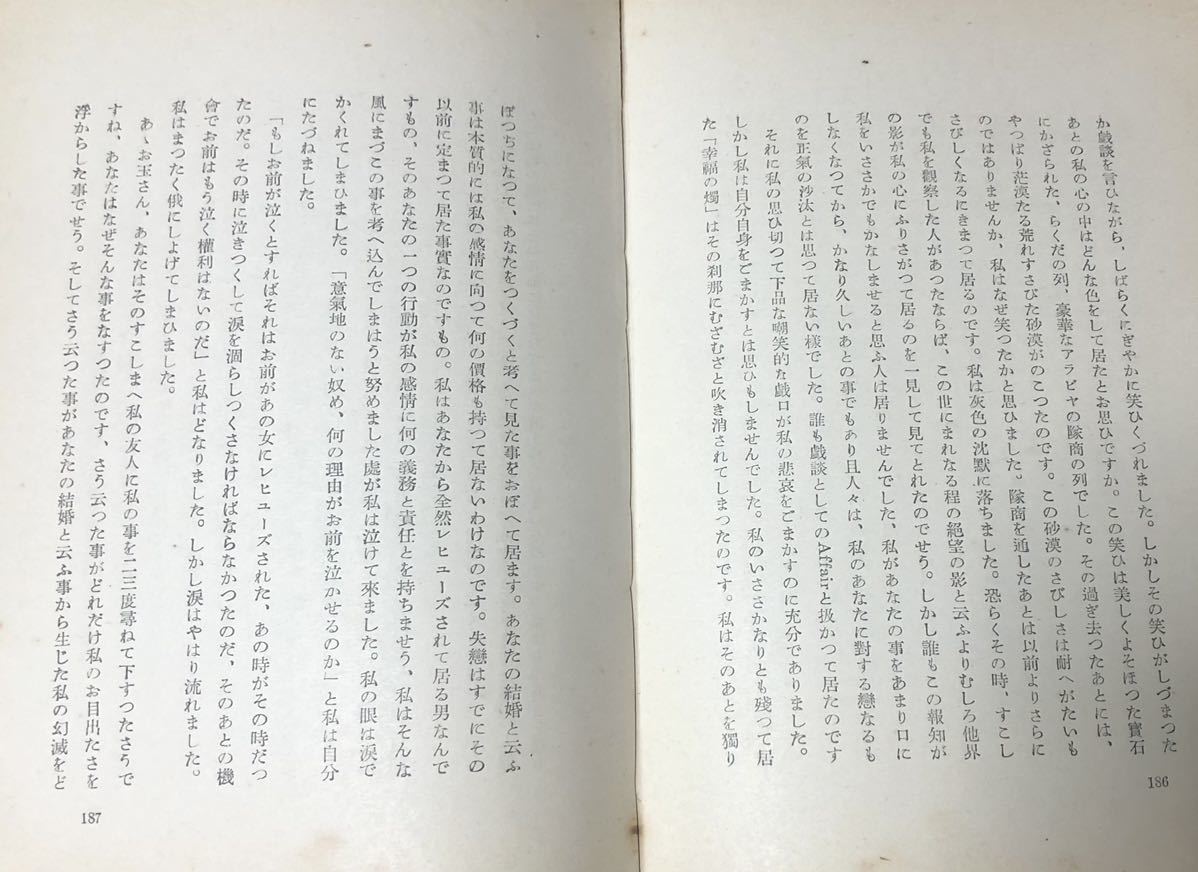 か戯談を言ひながら、しばらくにぎやかに笑ひくづれました。しかしその笑ひがしづまつた
あとの私の心の中はどんな色をして居たとお思ひですか。この笑ひは美しくよそほつた寶石
にかざられた、らくだの列、豪華なアラビヤの隊商の列でした。その過ぎ去つたあとには、
やつぱり茫漠たる荒れすさびた砂漠がのこつたのです。この砂漠のさびしさは耐へがたいも
のではありませんか、私はなぜ笑つたかと思ひました。隊商を通したあとは以前よりさらに
さびしくなるにきまつて居るのです。私は灰色の沈默に落ちました。恐らくその時、すこし
でも私を觀察した人があつたならば、この世にまれなる程の絶望の影と云ふよりむしろ他界
の影が私の心にふりさがつて居るのを一見して見てとれたのでせう。しかし誰もこの報知が
私をいささかでもかなしませると思ふ人は居りませんでした、私があなたの事をあまり口に
しなくなつてから、かなり久しいあとの事でもあり且人々は、私のあなたに對する戀なるも
のを正氣の沙汰とは思つて居ない樣でした。誰も戯談としてのAffairと扱かつて居たのです
それに私の思ひ切つて下品な嘲笑的な戯口が私の悲哀をごまかすのに充分でありました。
しかし私は自分自身をごまかすとは思ひもしませんでした。私のいささかなりとも殘つて居
た「幸福の燭」はその刹那にむざむざと吹き消されてしまつたのです。私はそのあとを獨り
186
ぼつちになつて、あなたをつくづくと考へて見た事をおぼへて居ます。あなたの結婚と云ふ
事は本質的には私の感情に向つて何の價格も持つて居ないわけなのです。失戀はすでにその
以前に定まつて居た事實なのですもの。私はあなたから全然レヒューズされて居る男なんで
すもの、そのあなたの一つの行動が私の感情に何の義務と責任とを持ちませう、私はそんな
風にまづこの事を考へ込んでしまはうと努めました處が私は泣けて來ました。私の眼は涙で
かくれてしまひました。「意氣地のない奴め、何の理由がお前を泣かせるのか」と私は自分
にたづねました。
「もしお前が泣くとすればそれはお前があの女にレヒューズされた、あの時がその時だつ
たのだ。その時に泣きつくして涙を涸らしつくさなければならなかつたのだ、そのあとの機
會でお前はもう泣く權利はないのだ」と私はどなりました。しかし涙はやはり流れました。
私はまつたく俄にしよげてしまひました。
あゝお玉さん、あなたはそのすこしまへ私の友人に私の事を二三度尋ねて下すつたさうで
すね、あなたはなぜそんな事をなすつたのです、さう云つた事がどれだけ私のお目出たさを
浮からした事でせう。そしてさう云つた事があなたの結婚と云ふ事から生じた私の幻滅をど
187